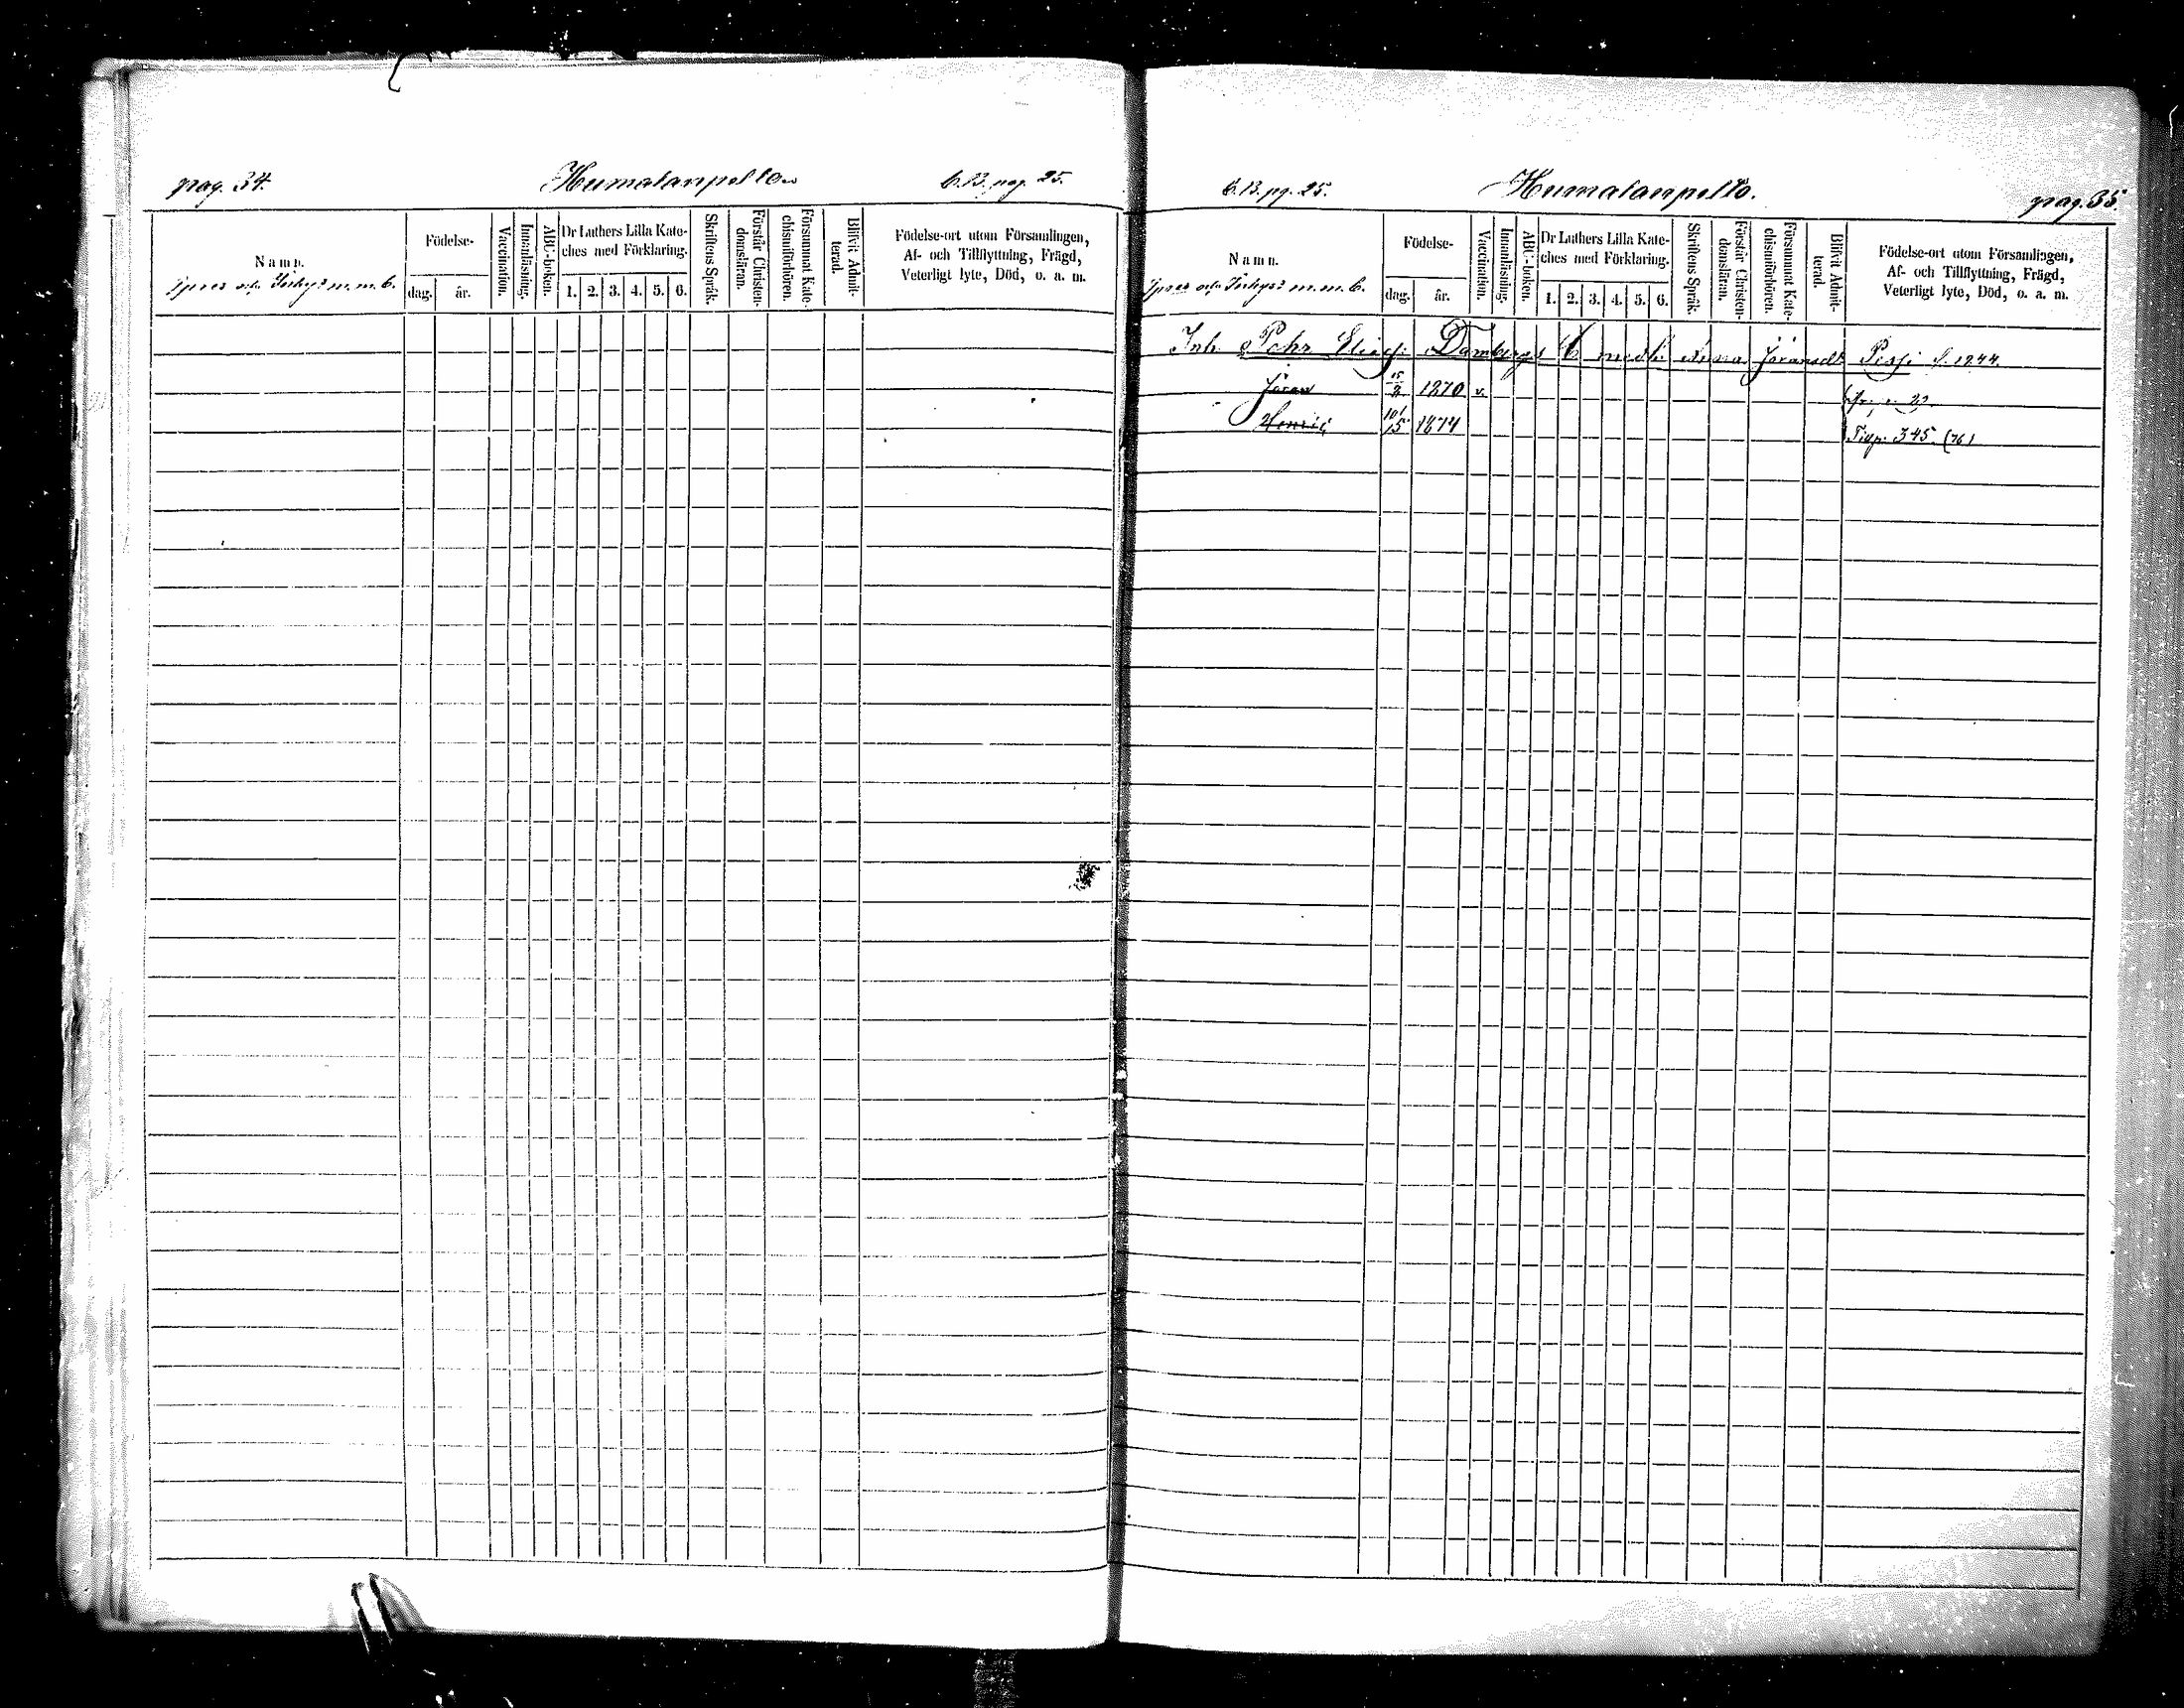 pag. 34. Humalanpelto C.B. pag. 25.
Namn.
Födelse-
dag. år.
Vaccination.
Innanläsning.
ABC-boken.
Dr Luthers Lilla Kate-
ches med Förklaring.
1. 2. 3. 4. 5. 6.
Skriftens Språk.
Förstår Christen-
domsläran.
Försummat Kate-
chismiförhören.
Blifvit Admit-
terad.
Födelse-ort utom Församlingen,
Af- och Tillflyttning, Frägd,
Veterligt lyte, Död, o. a. m.
m. m. b.
C.B. pg. 25. Humalanpelto. pag. 35.
Namn.
Födelse-
dag. år.
Vaccination.
Innanläsning.
ABC-boken.
Dr Luthers Lilla Kate-
ches med Förklaring.
1. 2. 3. 4. 5. 6.
Skriftens Språk.
Förstår Christen-
domsläran.
Försummat Kate-
chismiförhören.
Blifvit Admit-
terad.
Födelse-ort utom Församlingen,
Af- och Tillflyttning, Frägd,
Veterligt lyte, Död, o. a. m.
m. m. b.
Inh. Pehr Damberg Anna Göransdr Pessi f. 1844.
Göran 1870 v.
Henric 1874 345 (76)